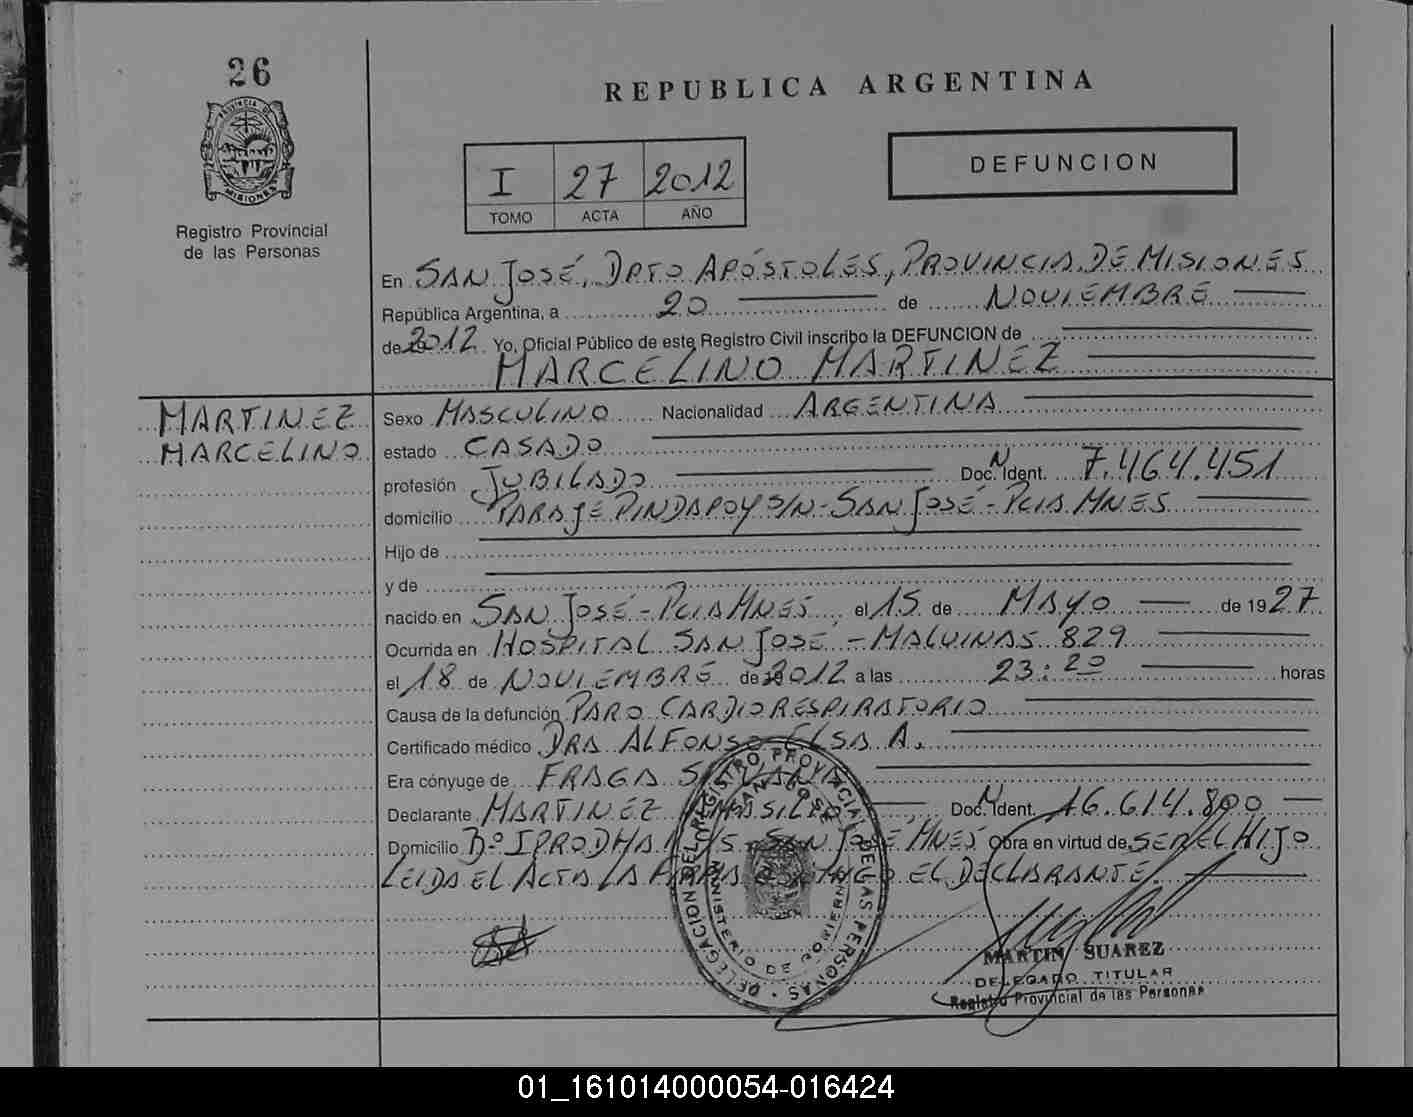 26
REPUBLICA ARGENTINA
PROVINCIA DE
MISIONES
Registro Provincial
de las Personas
I 27 2012
TOMO ACTA AÑO
DEFUNCION
En SAN JOSÉ, DPTO APÓSTOLES, PROVINCIA DE MISIONES
República Argentina, a 20 de NOVIEMBRE
de 2012 Yo, Oficial Público de este Registro Civil inscribo la DEFUNCION de
MARCELINO MARTINEZ
MARTINEZ
MARCELINO
Sexo MASCULINO Nacionalidad ARGENTINA
estado CASADO
profesión JUBILADO Doc. N Ident. 7.464.451
domicilio PARAJE PINDAPOY S/N - SAN JOSÉ - PCIA MNES
Hijo de
y de
nacido en SAN JOSÉ - PCIA MNES, el 15 de MAYO de 1927
Ocurrida en HOSPITAL SAN JOSÉ - MALVINAS 829
el 18 de NOVIEMBRE de 2012 a las 23:20 horas
Causa de la defunción PARO CARDIORESPIRATORIO
Certificado médico DRA ALFONSO ELSA A.
Era cónyuge de FRAGA
Declarante MARTINEZ Doc. N Ident. 16.614.800
Domicilio Bº IPRODHA SAN JOSÉ MNES Obra en virtud de SER EL HIJO
LEIDA EL ACTA LA FIRMA EL DECLARANTE.
DELEGACION DEL REGISTRO PROVINCIAL DE LAS PERSONAS
SAN JOSE
MINISTERIO DE GOBIERNO
MARTIN SUAREZ
DELEGADO TITULAR
Registro Provincial de las Personas
01_161014000054-016424